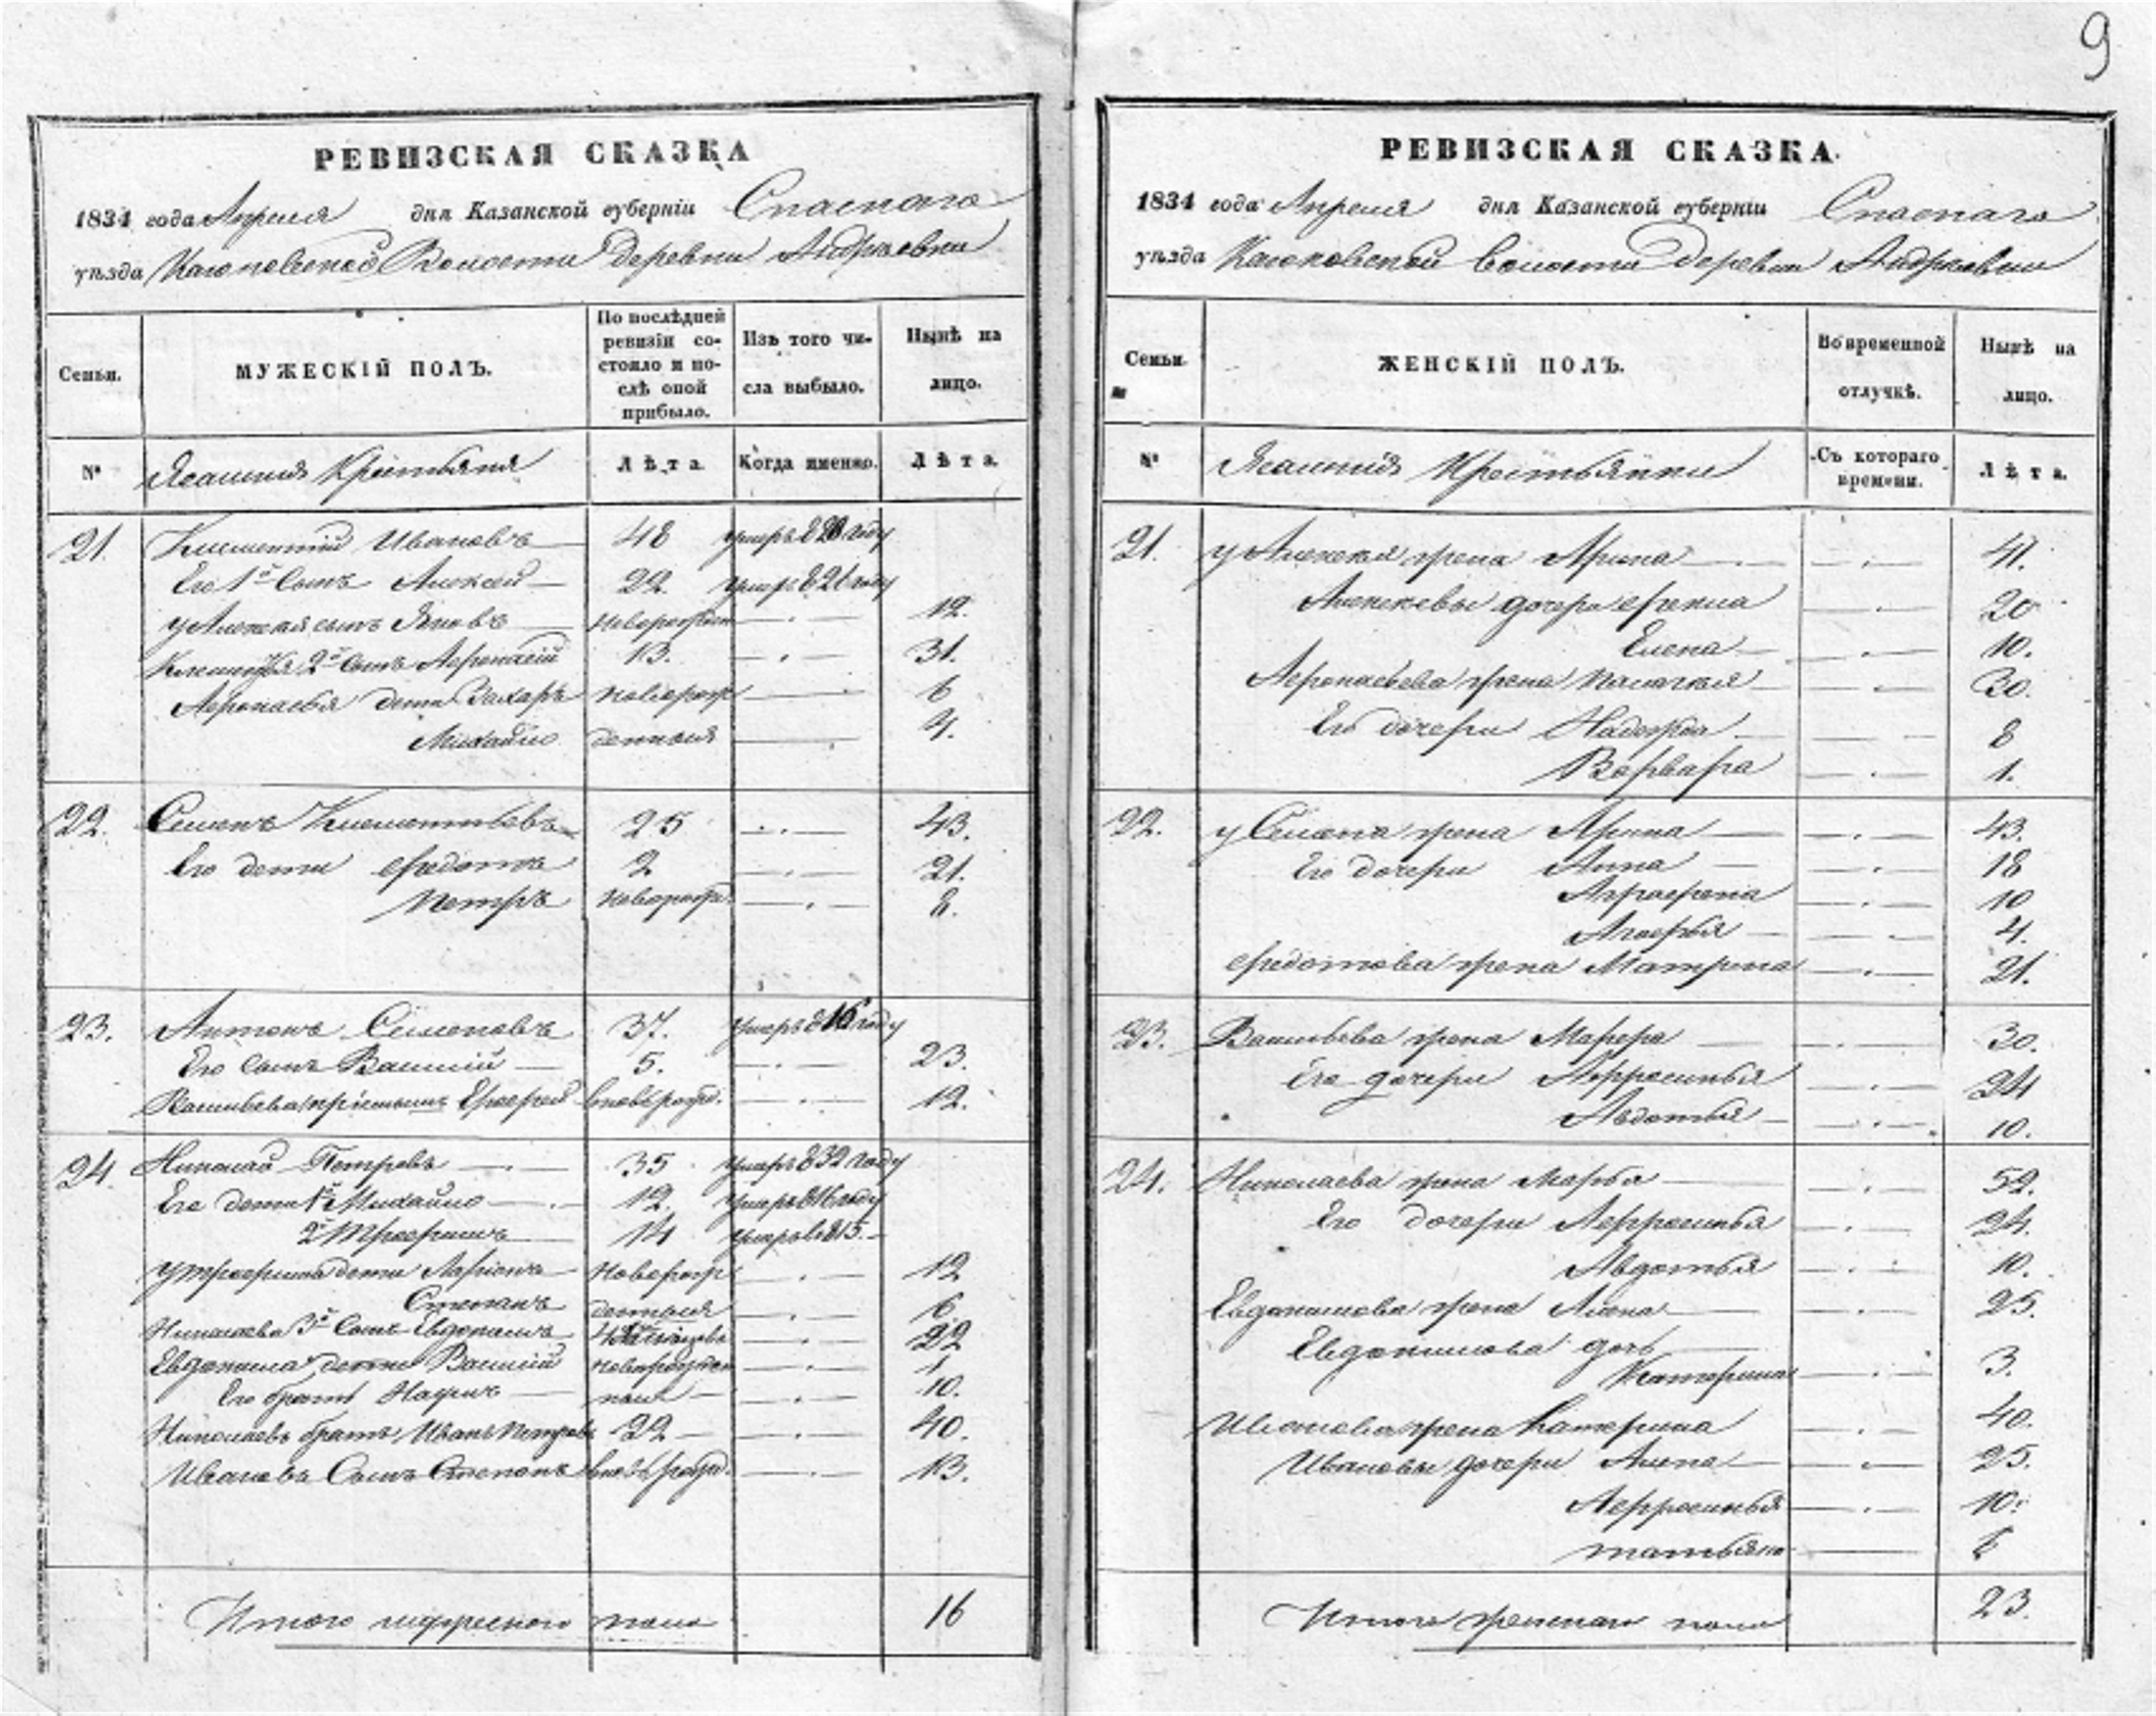 9
РЕВИЗСКАЯ СКАЗКА
1834 года Апреля дня Казанской губерніи Спаскаго
уѣзда Каюковской Волости деревни Андреевки
Семьи.
МУЖЕСКІЙ ПОЛЪ.
По послѣдней ревизіи состояло и послѣ оной прибыло.
Изъ того числа выбыло.
Нынѣ на лицо.
№ Ясашния Крестьяня Лѣта. Когда именно. Лѣта.
21. Клементий Ивановъ 48 умеръ 828 году
Его 1й Сынъ Алексей 22. умеръ 826 году
у Алексея сынъ Яковъ новорожден 12.
Клементья 2й сынъ Афонасій 13. 31.
Афонасья дети Захаръ новорож 6
Михайло денныя 4.
22. Семенъ Клементьевъ 25 43.
Его дети Федотъ 2 21.
Петръ новорож. 8.
23. Антонъ Семеновъ 37. умеръ 816 году
Его сынъ Василій 5. 23.
Васильева Ерофей вновь рожд. 12.
24. Николай Петровъ 35 умеръ 832 году
Его дети 1й Михайло 12. умеръ 816 году
2й Трофимъ 14 умеръ 815.
у Трофима дети Ларіонъ Новорож 12
Степанъ денныя 6
Николаева 3й Сынъ Евдокимъ 22
Евдокима дети Василій новорожден 1
Его братъ 10.
Николаевъ братъ Иванъ Петровъ 22 40.
Ивановъ Сынъ Степанъ вновь рожд. 13.
Итого мужескаго пола 16
РЕВИЗСКАЯ СКАЗКА.
1834 года Апреля дня Казанской губерніи Спаскаго
уѣзда Каюковской Волости деревни Андреевки
Семьи.
ЖЕНСКІЙ ПОЛЪ.
Во временной отлучкѣ.
Нынѣ на лицо.
№ Ясашния Крестьянки Съ котораго времени. Лѣта.
21. у Алексея жена Арина 41.
Алексеевы дочери Фекла 20
Елена 10.
Афонасьева жена Палагея 30.
Его дочери Надежда 8
Варвара 1.
22. у Семена жена Арина 43.
Его дочери Анна 18
Аграфена 10
Агафья 4.
Федотова жена Матрена 21.
23. Васильева жена Марфа 30.
Его дочери Афросинья 24
Авдотья 10.
24. Николаева жена Марья 52.
Его дочери Афросинья 24.
Авдотья 10.
Евдокимова жена Алена 25.
Евдокимова дочь
Катерина 3.
Иванова жена Катерина 40.
Ивановы дочери Алена 25.
Афросинья 10.
Татьяна 6
Итого женскаго пола 23.